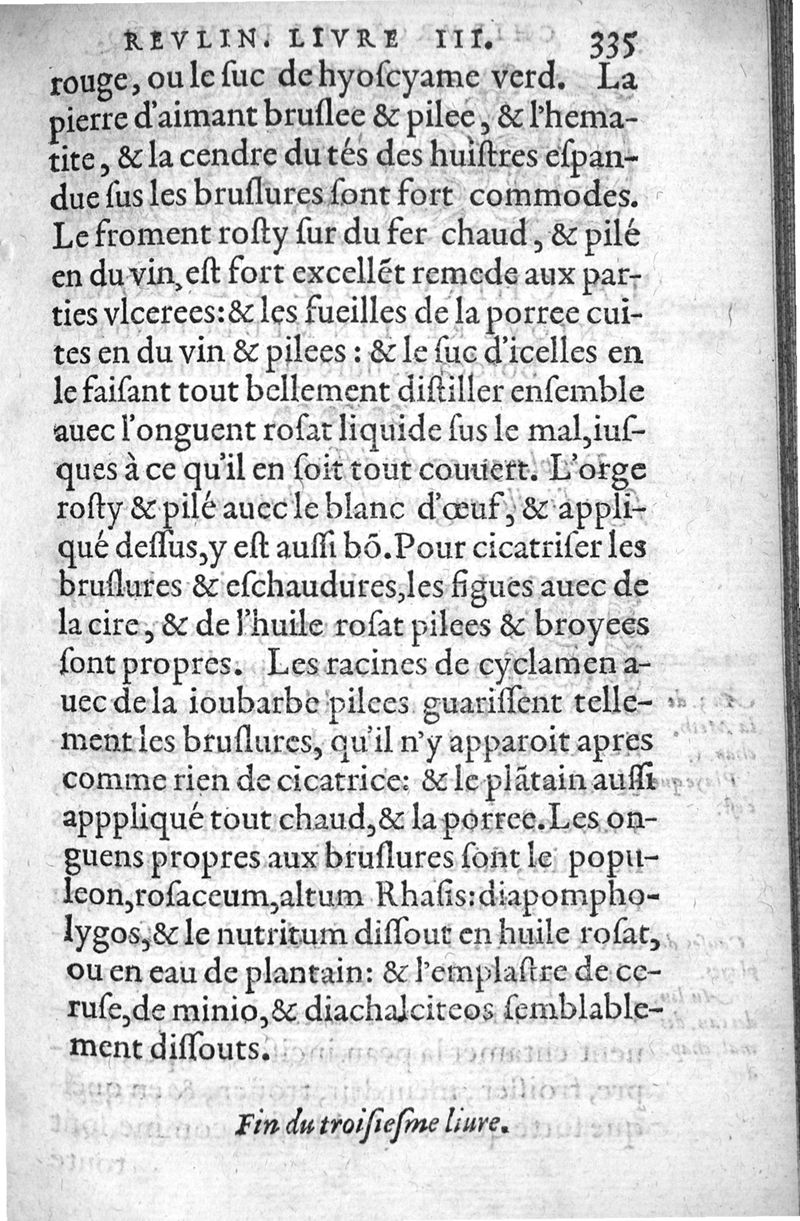 REVLIN. LIVRE III. 335
rouge, ou le ſuc de hyoſcyame verd. La
pierre d'aimant bruſlee & pilee, & l'hema-
tite, & la cendre du tés des huiſtres eſpan-
due ſus les bruſlures ſont fort commodes.
Le froment roſty ſur du fer chaud, & pilé
en du vin, eſt fort excellẽt remede aux par-
ties vlcerees:& les fueilles de la porree cui-
tes en du vin & pilees : & le ſuc d'icelles en
le faiſant tout bellement diſtiller enſemble
auec l'onguent roſat liquide ſus le mal,iuſ-
ques à ce qu'il en ſoit tout couuert. L'orge
roſty & pilé auec le blanc d'œuf, & appli-
qué deſſus,y eſt auſſi bõ.Pour cicatriſer les
bruſlures & eſchaudures,les figues auec de
la cire, & de l'huile roſat pilees & broyees
ſont propres. Les racines de cyclamen a-
uec de la ioubarbe pilees guariſſent telle-
ment les bruſlures, qu'il n'y apparoit apres
comme rien de cicatrice: & le plãtain auſſi
apppliqué tout chaud,& la porree.Les on-
guens propres aux bruſlures ſont le popu-
leon,roſaceum,altum Rhaſis:diapompho-
lygos,& le nutritum diſſout en huile roſat,
ou en eau de plantain: & l'emplaſtre de ce-
ruſe,de minio,& diachalciteos ſemblable-
ment diſſouts.
Fin du troiſieſme liure.